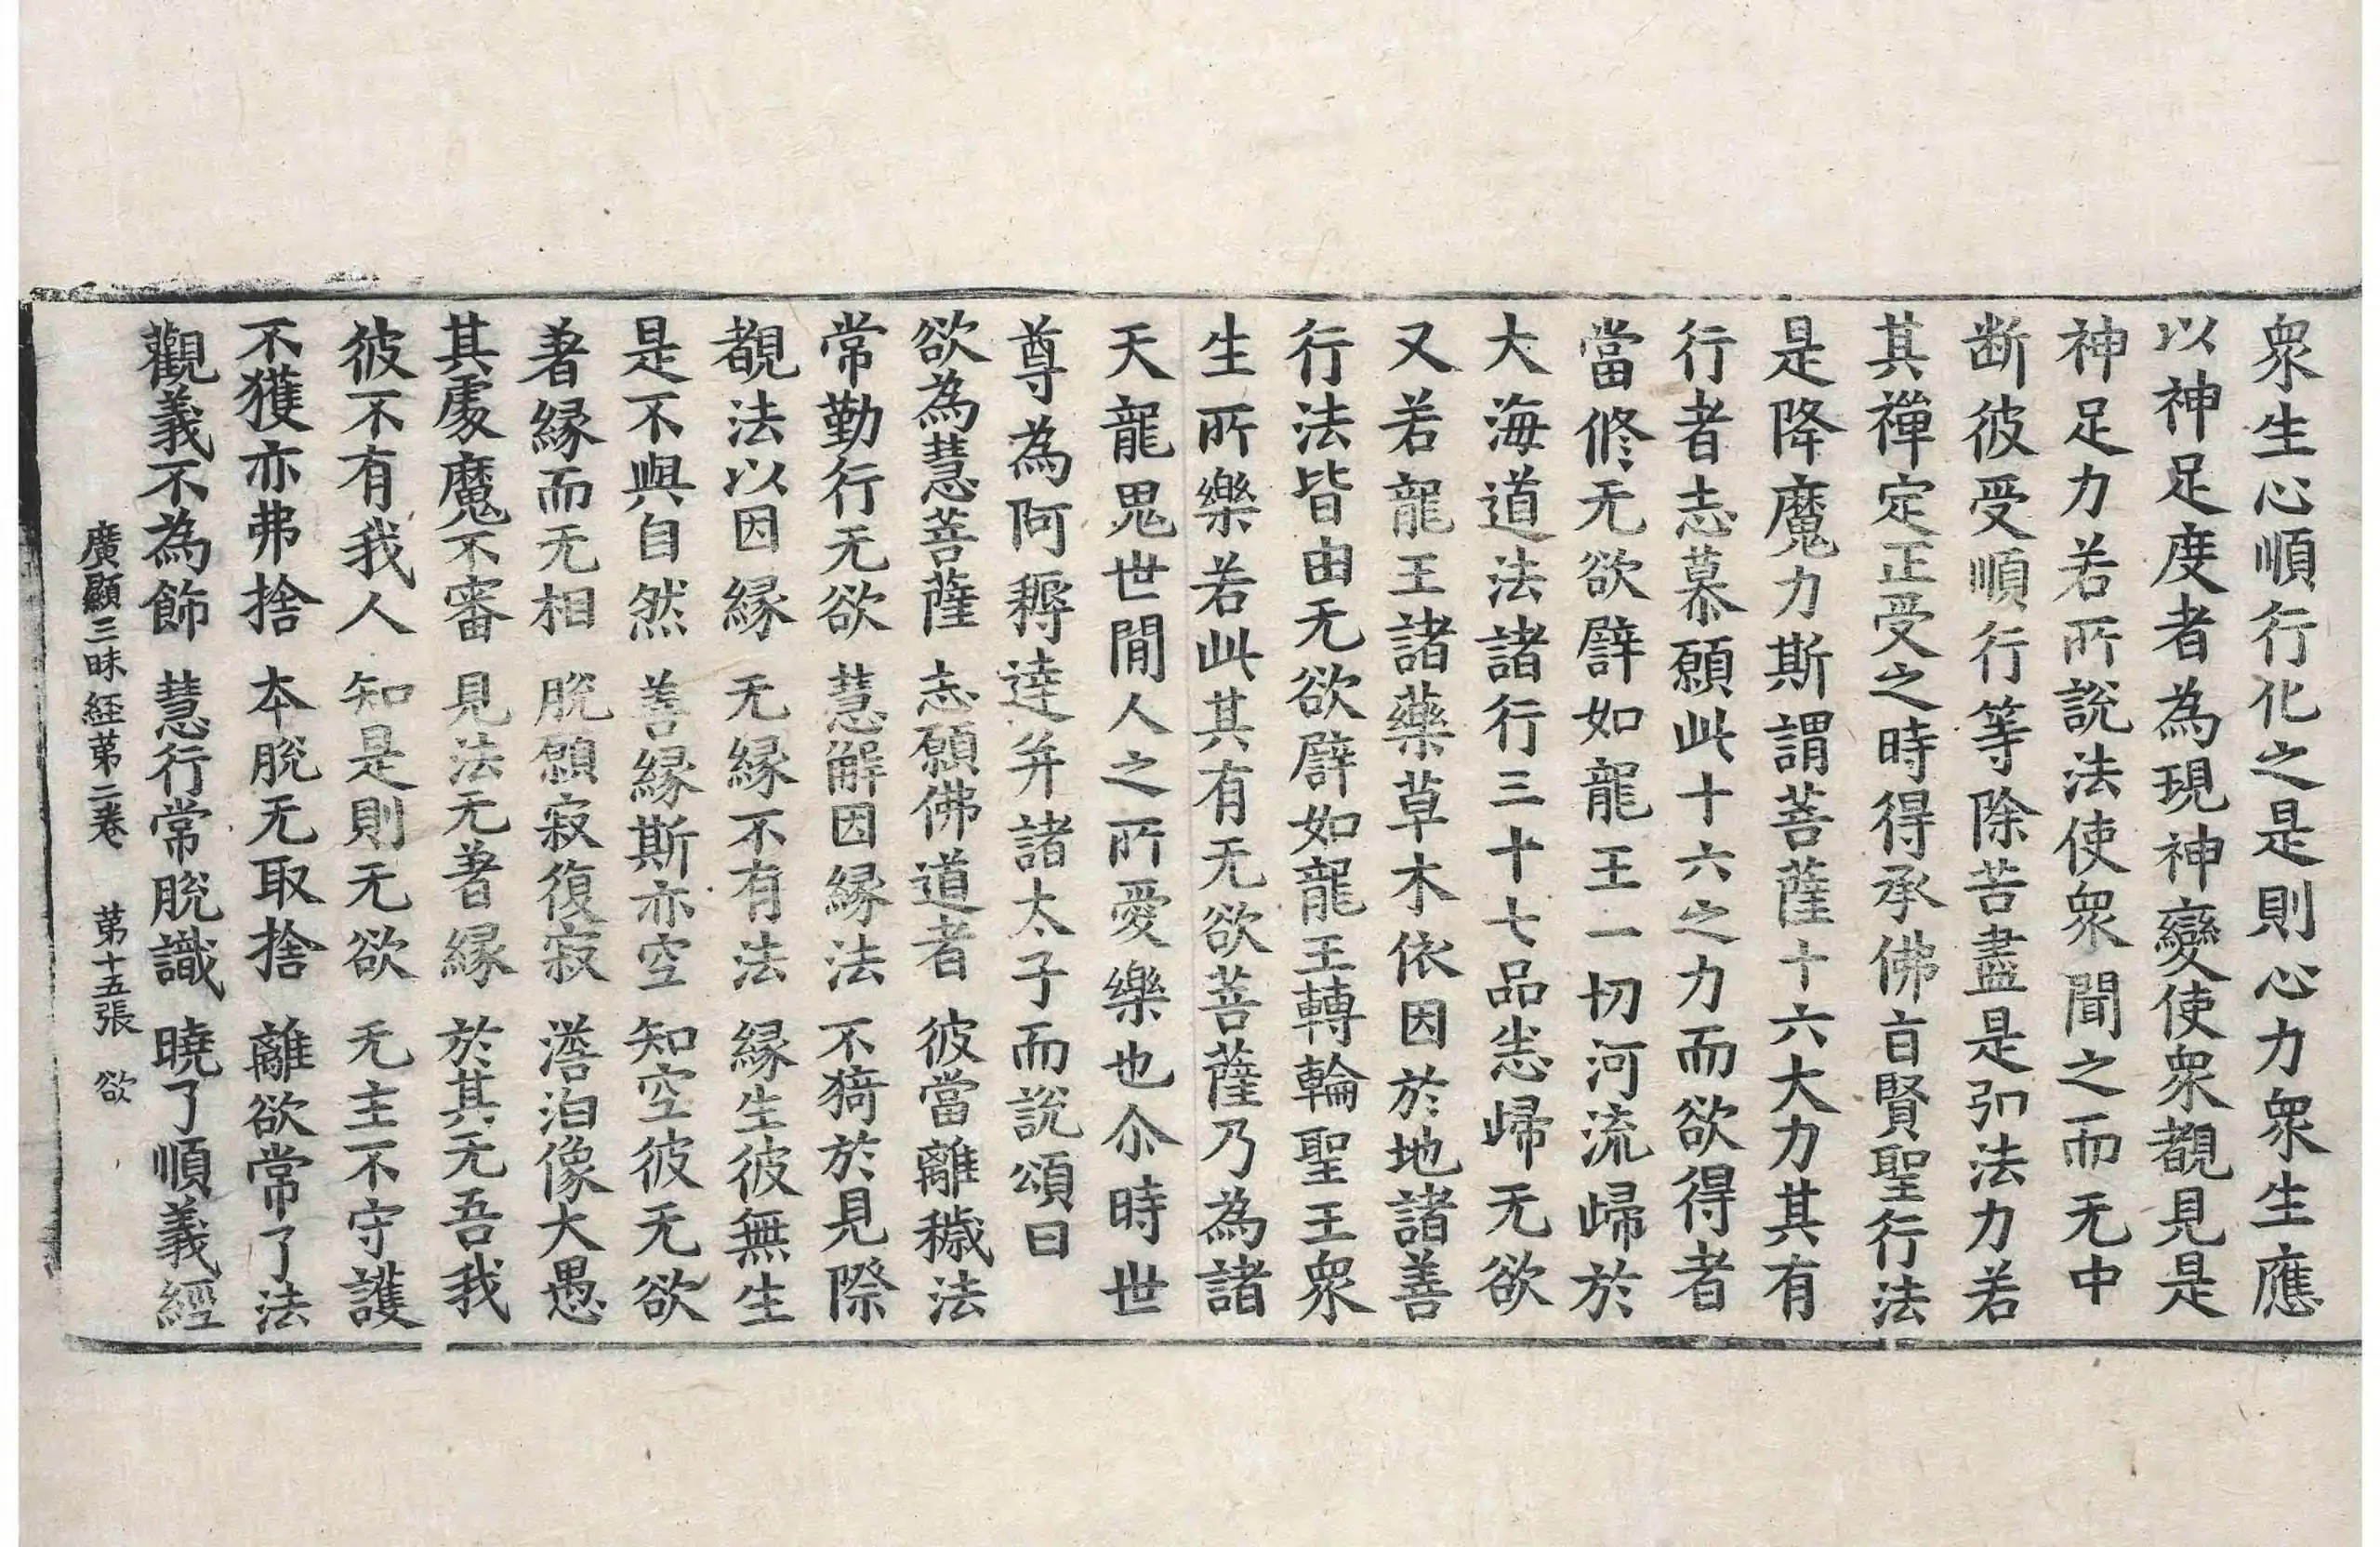 衆生心順行化之是則心力衆生應
以神足度者為現神變使衆覩見是
神足力若所說法使衆聞之而无中
断彼受順行等除苦盡是引法力若
其禪定正受之時得承佛㫖賢聖行法
是降魔力斯謂菩薩十六大力其有
行者志慕願此十六之力而欲得者
當修无欲譬如龍王一切河流歸於
大海道法諸行三十七品悉歸无欲
又若龍王諸藥草木依因於地諸善
行法皆由无欲譬如龍王轉輪聖王衆
生所樂若此其有无欲菩薩乃為諸
天龍鬼世間人之所愛樂也尒時世
尊為阿耨達并諸太子而說頌曰
欲為慧菩薩 志願佛道者 彼當離穢法
常勤行无欲 慧解因緣法 不猗於見際
覩法以因緣 无緣不有法 緣生彼無生
是不與自然 善緣斯亦空 知空彼无欲
著緣而无相 脫願寂復寂 澹泊像大愚
其處魔不審 見法无著緣 於其无吾我
彼不有我人 知是則无欲 无主不守護
不獲亦弗捨 本脫无取捨 離欲常了法
觀義不為飾 慧行常脫識 曉了順義經
廣顯三昧經第二卷 第十五張 欲